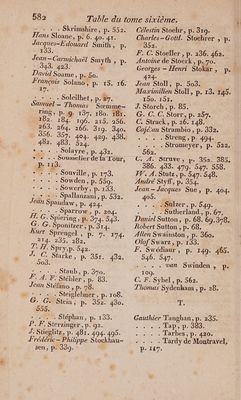 582 Table du tome sixième.
. . . . Skrimshire, p. 552.
Hans Sloane, p. 6. 40. 41.
Jacques-Edouard Smith, p.
133.
Jean-Carmichaël Smyth, p.
343. 423.
David Soame, p. 50.
François Solano, p. 15. 16.
17.
. . . . Soleilhet, p. 27.
Samuel-Thomas Sœmme-
ring, p. 9. 137. 180. 181.
182. 184. 196. 215. 256.
263. 264. 266. 319. 340.
356. 357. 404. 409. 438.
482. 483. 524.
. . . . Solayre, p. 431.
. . . . Sousselier de la Tour,
p. 113.
. . . . Souville, p. 173.
. . . . Sowden, p. 559.
. . . . Sowerby, p. 133.
. . . . Spallanzani, p. 532.
Jean Spaudaw, p. 424.
. . . . Sparrow, p. 204.
H. G. Spiering, p. 374. 543.
G. G. Sponitzer, p. 314.
Kurt Sprengel, p. 7. 174.
214. 235. 282.
T. H. Spry, p. 542.
J. C. Starke, p. 351. 432.
503.
. . . . Staub, p. 370.
F. A. F. Stébler, p. 83.
Jean Stéfano, p. 78.
. . . . Steiglehner, p. 108.
G. G. Stein, p. 352. 430.
555.
. . . . Stéphan, p. 133.
P. F. Sterzinger, p. 92.
J. Stieglitz, p. 481. 494. 495.
Frédéric-Philippe Stockhau-
sen, p. 339.
Célestin Stoehr, p. 319.
Charles-Gottl. Stoehrer, p.
352.
F. C. Stoeller, p. 236. 462.
Antoine de Stoerck, p. 70.
Georges-Henri Stokar, p.
424.
Jean Stoll, p. 503.
Maximilien Stoll, p. 23. 145.
150. 151.
J. Storch, p. 85.
G. C. C. Storr, p. 257.
C. Strack, p. 26. 148.
Cajétan Strambio, p. 332.
. . . . Streng, p. 494.
. . . . Stromeyer, p. 522.
562.
C. A. Struve, p. 352. 385.
386. 433. 479. 547. 558.
W. A. Stutz, p. 547. 548.
André Styff, p. 354.
Jean-Jacques Sue, p. 404.
405.
. . . . Sulzer, p. 549.
. . . . Sutherland, p. 67.
Daniel Sutton, p. 68. 69. 378.
Robert Sutton, p. 68.
Allen Swainston, p. 360.
Olof Swarz, p. 133.
F. Swediaur, p. 149. 465.
546. 547.
. . . . van Swinden, p.
109.
C. F. Sybel, p. 562.
Thomas Sydenham, p. 28.
T.
Gauthier Tanghan, p. 235.
. . . . Tap, p. 383.
. . . . Tarbes, p. 420.
. . . . Tardy de Montravel,
p. 147.